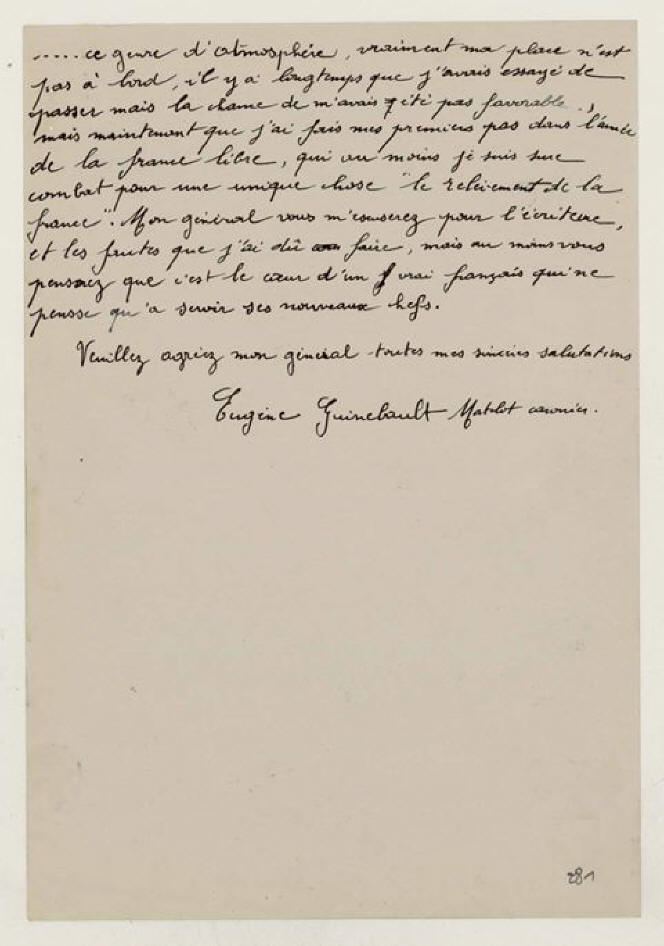 ..... ce genre d'atmosphère, vraiment ma place n'est
pas à bord, il y a longtemps que j'avais essayé de
passer mais la chance ne m'avais été pas favorable.,
mais maintenant que j'ai fais mes premiers pas dans l'armée
de la france libre, qui au moins je suis sur
combat pour une unique chose "le relèvement de la
france". Mon général vous m'excuserez pour l'écriture,
et les fautes que j'ai dû faire, mais au moins vous
penserez que c'est le cœur d'un vrai français qui ne
pensse qu'a servir ses nouveaux chefs.
Veuillez agriez mon général toutes mes sincères salutations
Eugène Guinebault Matelot canonier.
281